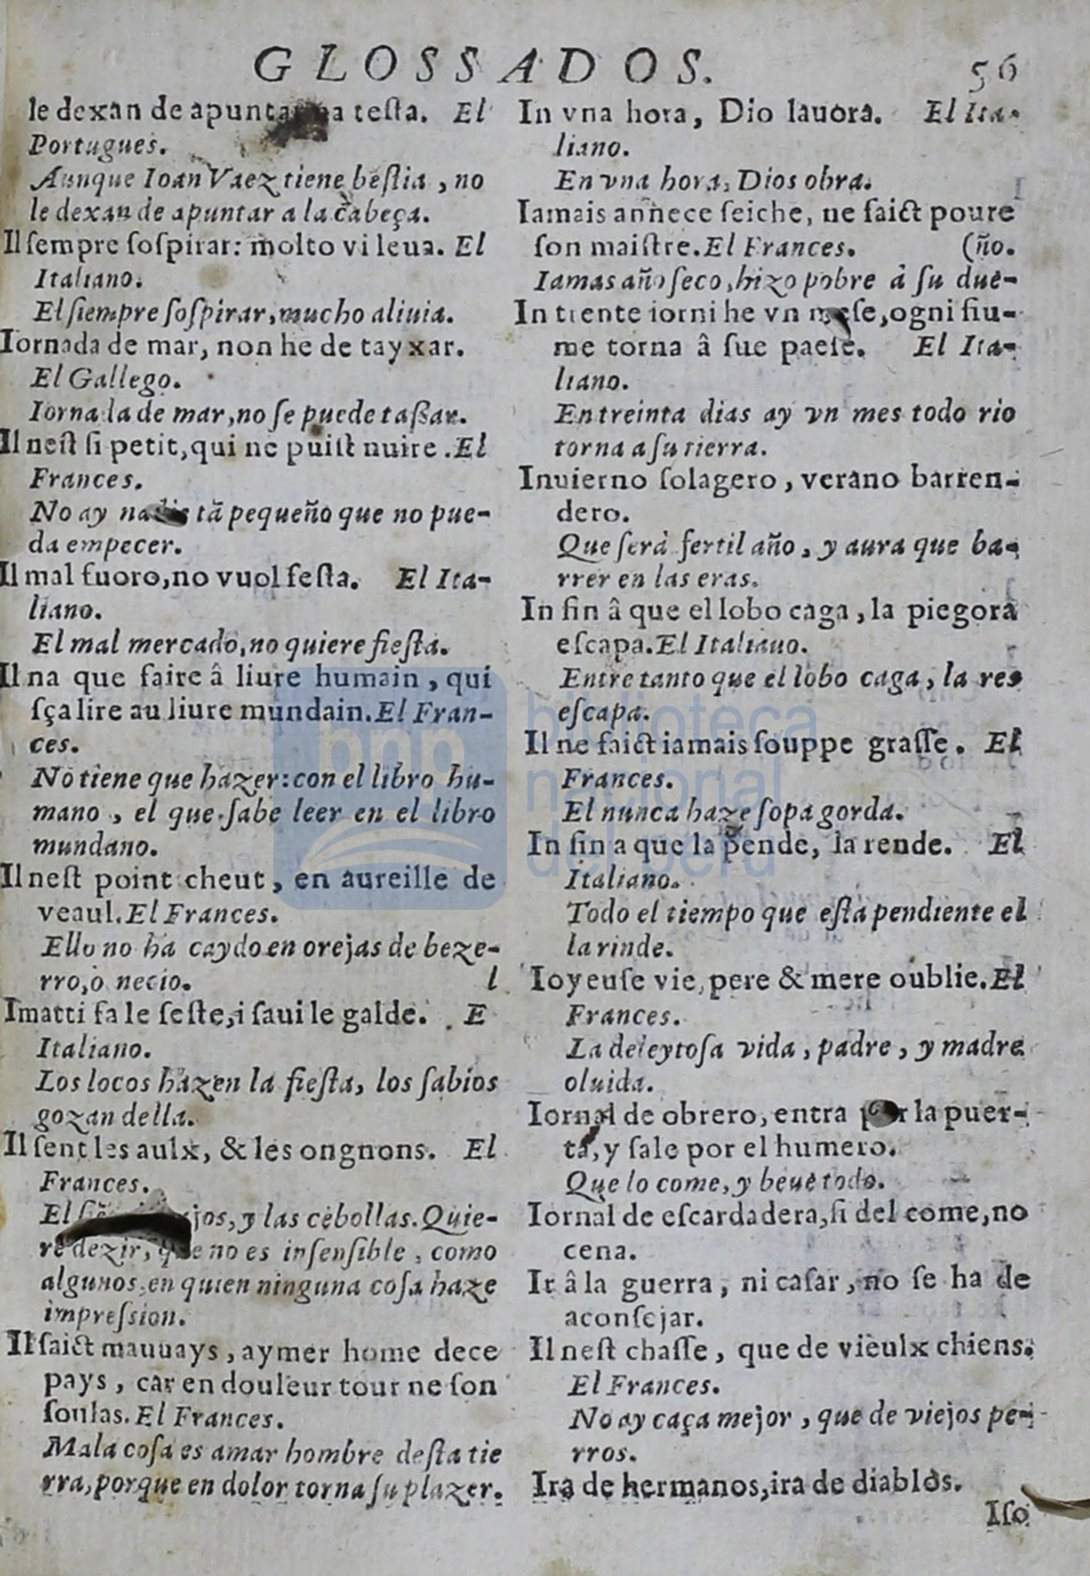 GLOSSADOS. 56
le dexan de apuntar a testa. El
Portugues.
Aunque Ioan Vaez tiene bestia, no
le dexan de apuntar a la cabeça.
Il sempre sospirar: molto vi leua. El
Italiano.
El siempre sospirar, mucho aliuia.
Iornada de mar, non he de tayxar.
El Gallego.
Iornada de mar, no se puede tassar.
Il nest si petit, qui ne puist nuire. El
Frances.
No ay nadie tã pequeño que no pue-
da empecer.
Il mal fuoro, no vuol festa. El Ita-
liano.
El mal mercado, no quiere fiesta.
Il na que faire â liure humain, qui
sça lire au liure mundain. El Fran-
ces.
No tiene que hazer: con el libro hu-
mano, el que sabe leer en el libro
mundano.
Il nest point cheut, en aureille de
veaul. El Frances.
Ello no ha caydo en orejas de beze-
rro, o necio. l
Imatti fa le feste, i saui le galde. E
Italiano.
Los locos hazen la fiesta, los sabios
gozan della.
Il sent les aulx, & les ongnons. El
Frances.
El jos, y las cebollas. Quie-
re dezir, que no es insensible, como
algunos, en quien ninguna cosa haze
impression.
Il faict mauuays, aymer home dece
pays, car en douleur tour ne son
soulas. El Frances.
Mala cosa es amar hombre desta tie
rra, porque en dolor torna su plazer.
In vna hora, Dio lauora. El Ita-
liano.
En vna hora, Dios obra.
Iamais annece seiche, ne faict poure
son maistre. El Frances. (ño.
Iamas año seco, hizo pobre à su due-
In trente iorni he vn mese, ogni fiu-
me torna â sue paese. El Ita-
liano.
En treinta dias ay vn mes todo rio
torna a su tierra.
Inuierno solagero, verano barren-
dero.
Que serà fertil año, y aura que ba-
rrer en las eras.
In fin â que el lobo caga, la piegora
escapa. El Italiano.
Entre tanto que el lobo caga, la res
escapa.
Il ne faict iamais souppe grasse. El
Frances.
El nunca haze sopa gorda.
In fin a que la pende, la rende. El
Italiano.
Todo el tiempo que esta pendiente el
la rinde.
Ioyeuse vie, pere & mere oublie. El
Frances.
La deleytosa vida, padre, y madre
oluida.
Iornal de obrero, entra por la puer-
ta, y sale por el humero.
Que lo come, y beue todo.
Iornal de escardadera, si del come, no
cena.
Ir â la guerra, ni casar, no se ha de
aconsejar.
Il nest chasse, que de vieulx chiens.
El Frances.
No ay caça mejor, que de viejos pe-
rros.
Ira de hermanos, ira de diablos.
Iso
bnp
biblioteca
nacional
del perú